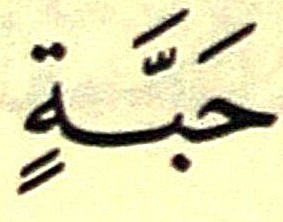 حَبَّةٍ